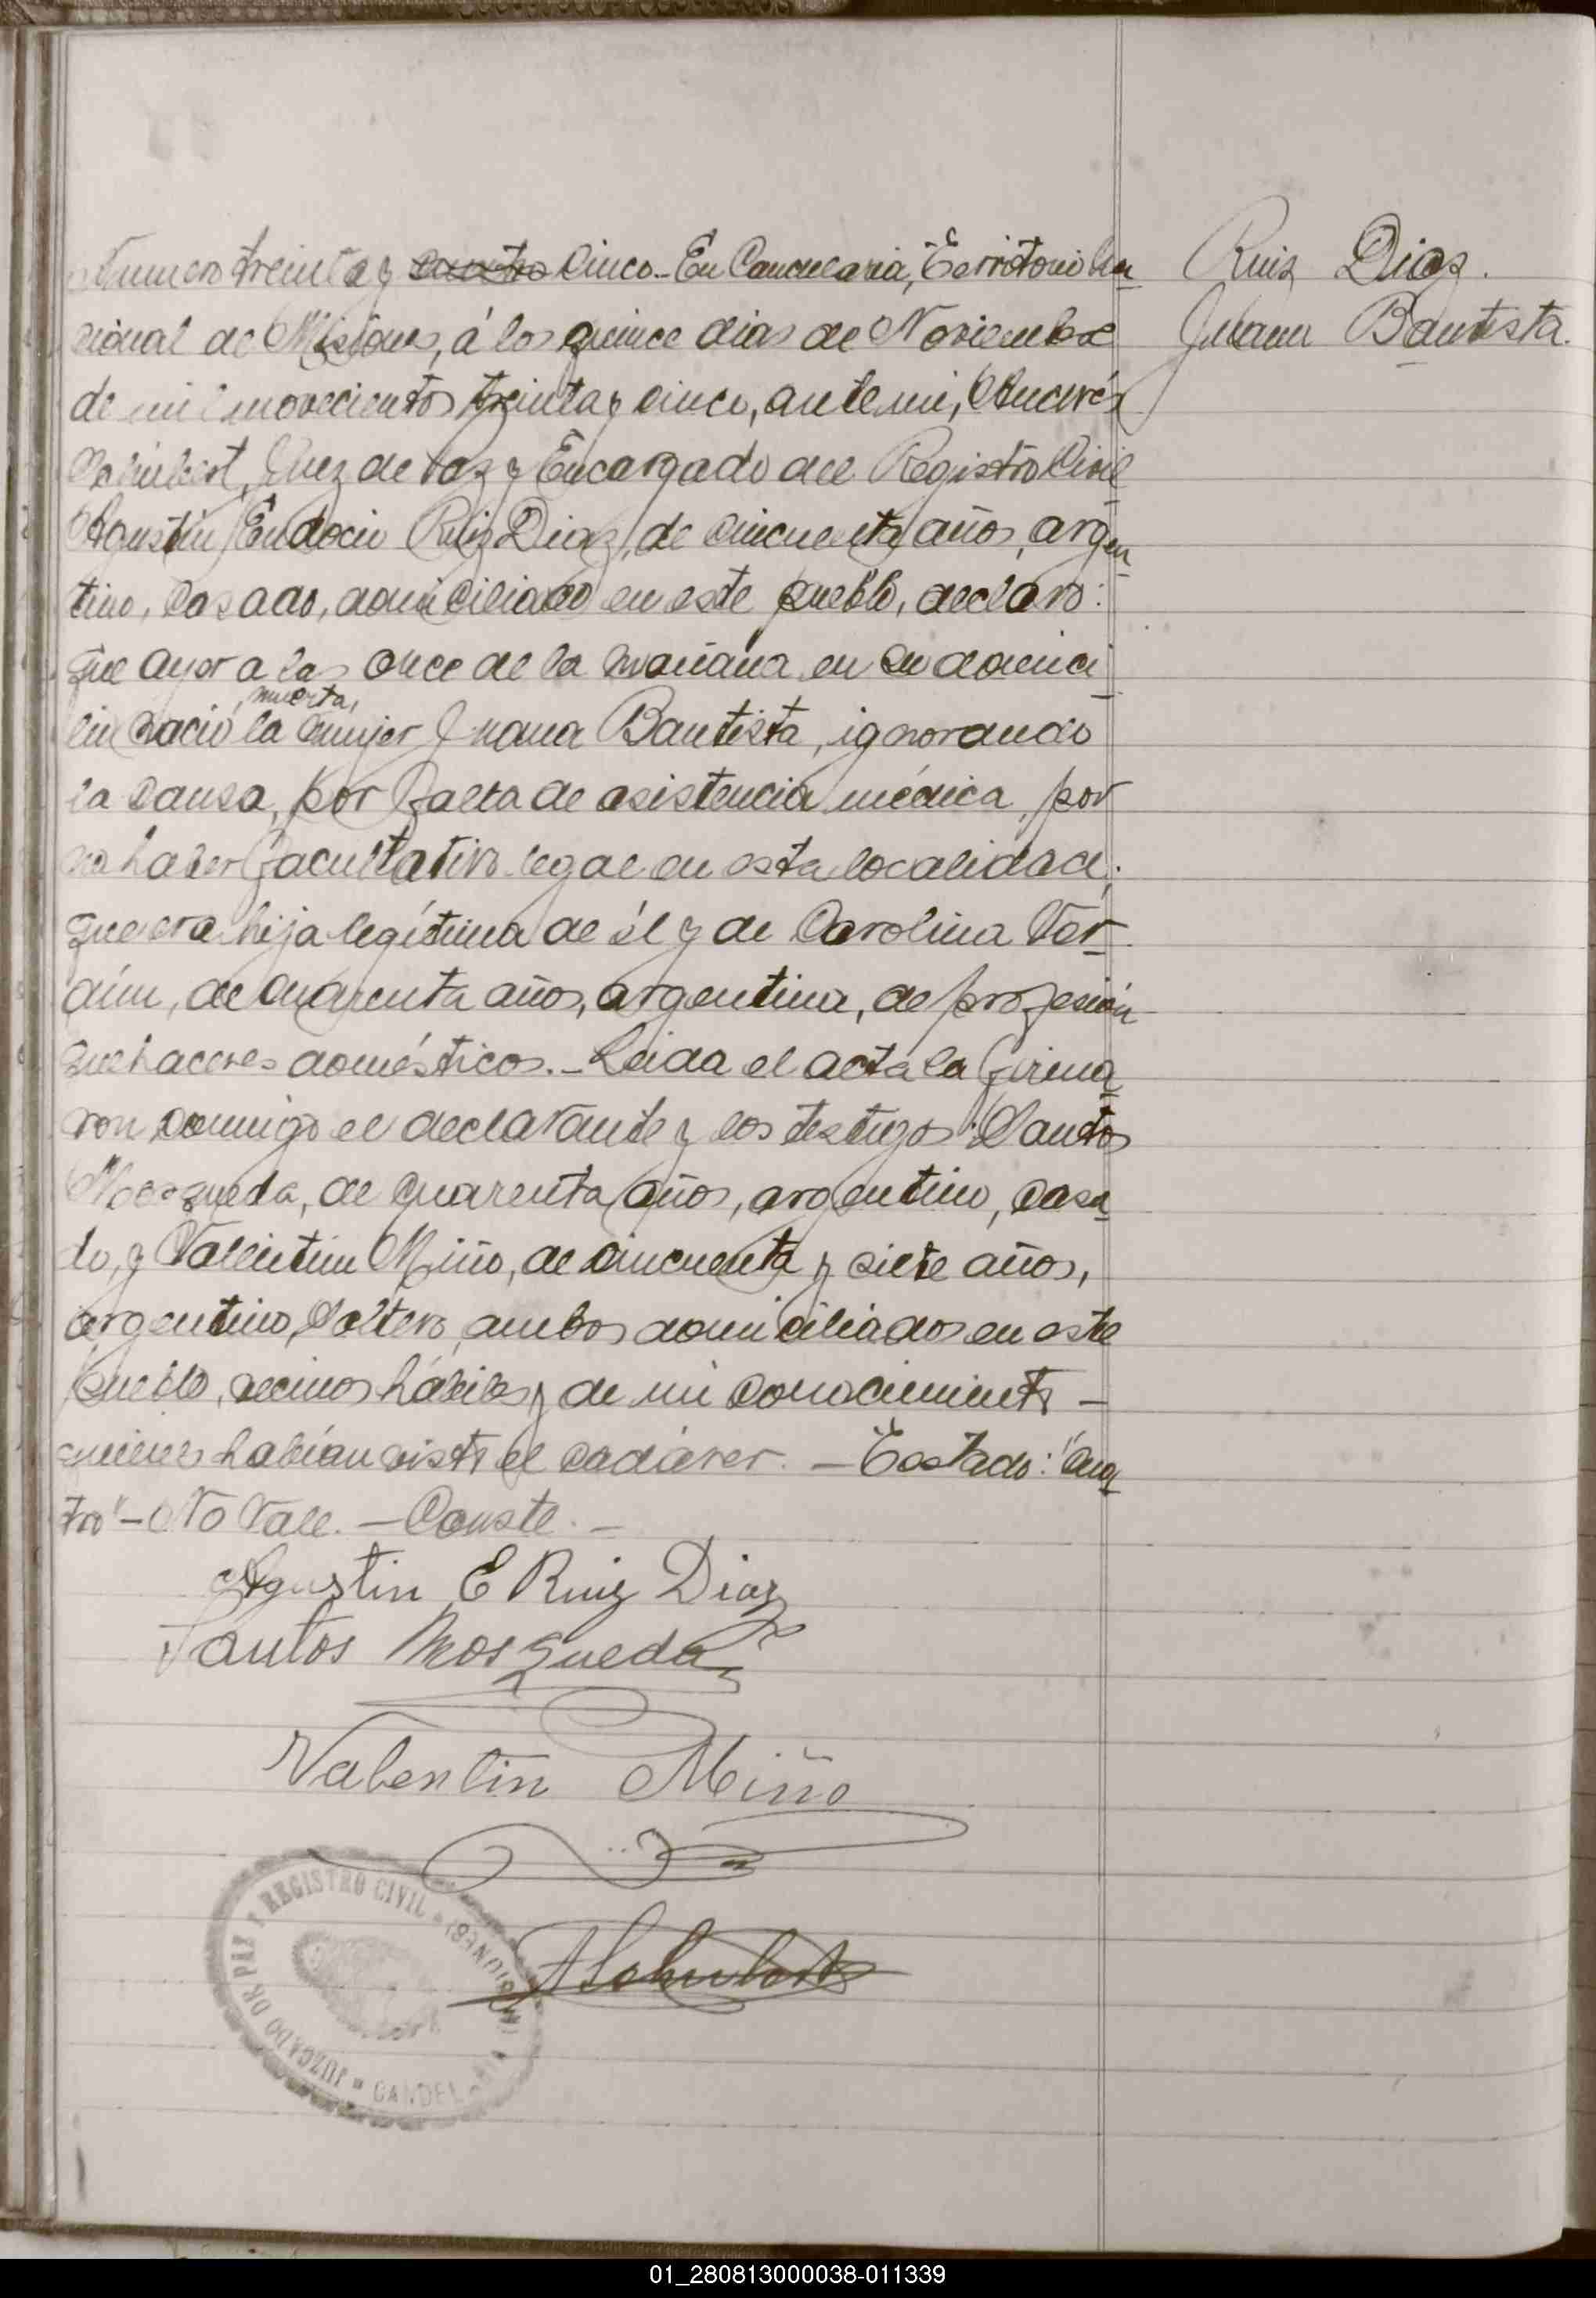 Numero treinta y cuatro cinco.- En Candelaria, Territorio Na
cional de Misiones, á los quince dias de Noviembre
de mil novecientos treinta y cinco, ante mi, Andrés
Schubert, Juez de Paz y Encargado del Registro Civil
Agustin Eudocio Ruiz Diaz, de cincuenta años, argen
tino, casado, domiciliado en este pueblo, declaro:
que ayer a las once de la mañana en su domici
muerta,
lio nació la mujer Juana Bautista, ignorando
la causa, por falta de asistencia médica, por
no haber facultativo legal en esta localidad;
que era hija legítima de él y de Carolina Ver
dún, de cuarenta años, argentina, de profesión
quehaceres domésticos.- Leida el acta la firma
ron conmigo el declarante y los testigos: Santos
Mosqueda, de cuarenta años, argentino, casa
do, y Valentin Miño, de cincuenta y siete años,
argentino, soltero, ambos domiciliados en este
pueblo, vecinos hábiles y de mi conocimiento -
quienes habían visto el cadáver. - Testado: "Cua
tro" - No Vale. - Conste. -
Agustin E Ruiz Diaz
Santos Mosqueda
Valentin Miño
ASchubert
JUZGADO DE PAZ Y REGISTRO CIVIL
CANDELARIA (MISIONES)
Ruiz Diaz.
Juana Bautista.
01_280813000038-011339